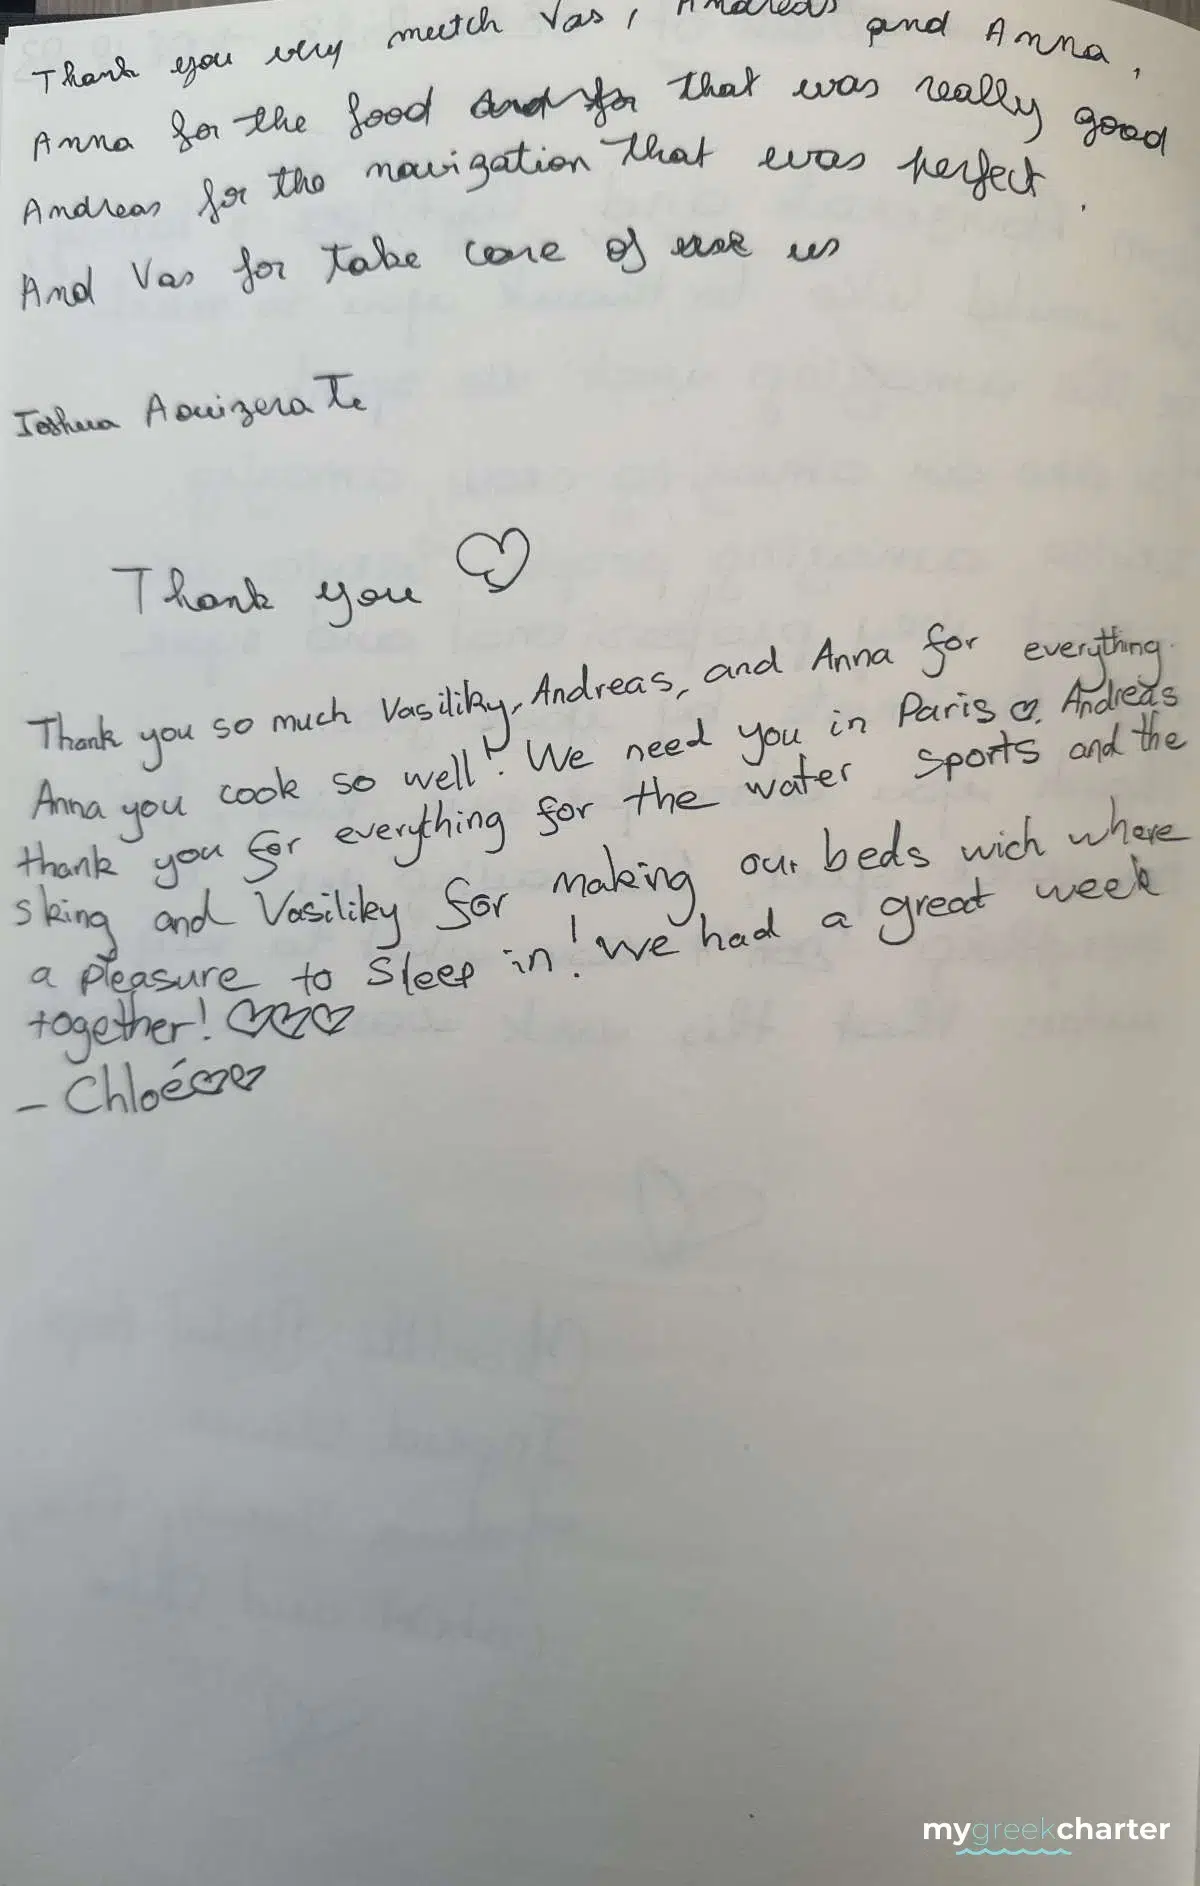 Thank you very mutch Vas, Andreas and Anna,
Anna for the food that was really good
Andreas for the navigzation that was perfect.
And Vas for take care of us
Ioshua Aouizerate
Thank you
Thank you so much Vasiliky, Andreas, and Anna for everything.
Anna you cook so well! We need you in Paris. Andreas
thank you for everything for the water sports and the
sking and Vasiliky for making our beds wich where
a pleasure to sleep in! We had a great week
together!
- Chloé
mygreekcharter